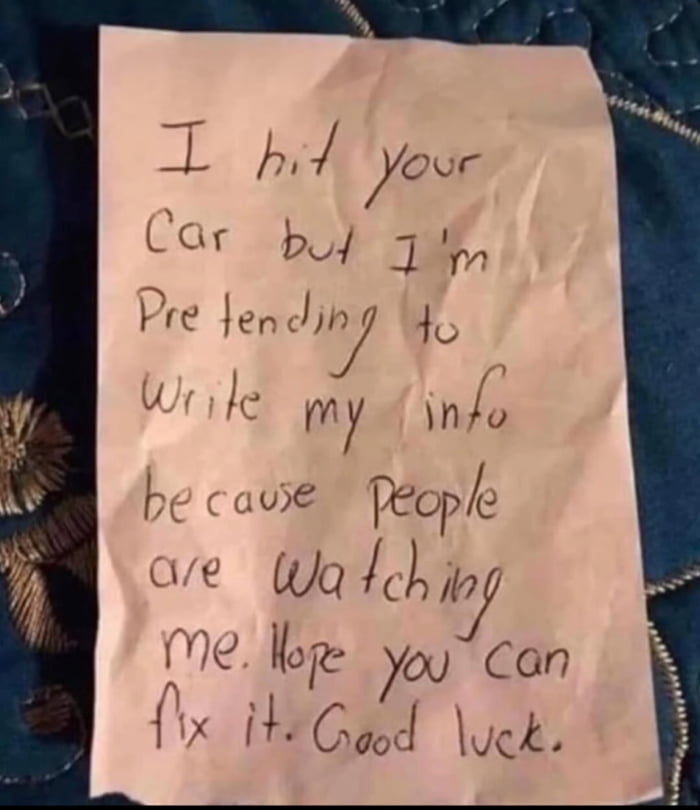 I hit your
Car but I'm
Pretending to
Write my info
because People
are Watching
me. Hope you can
fix it. Good luck.